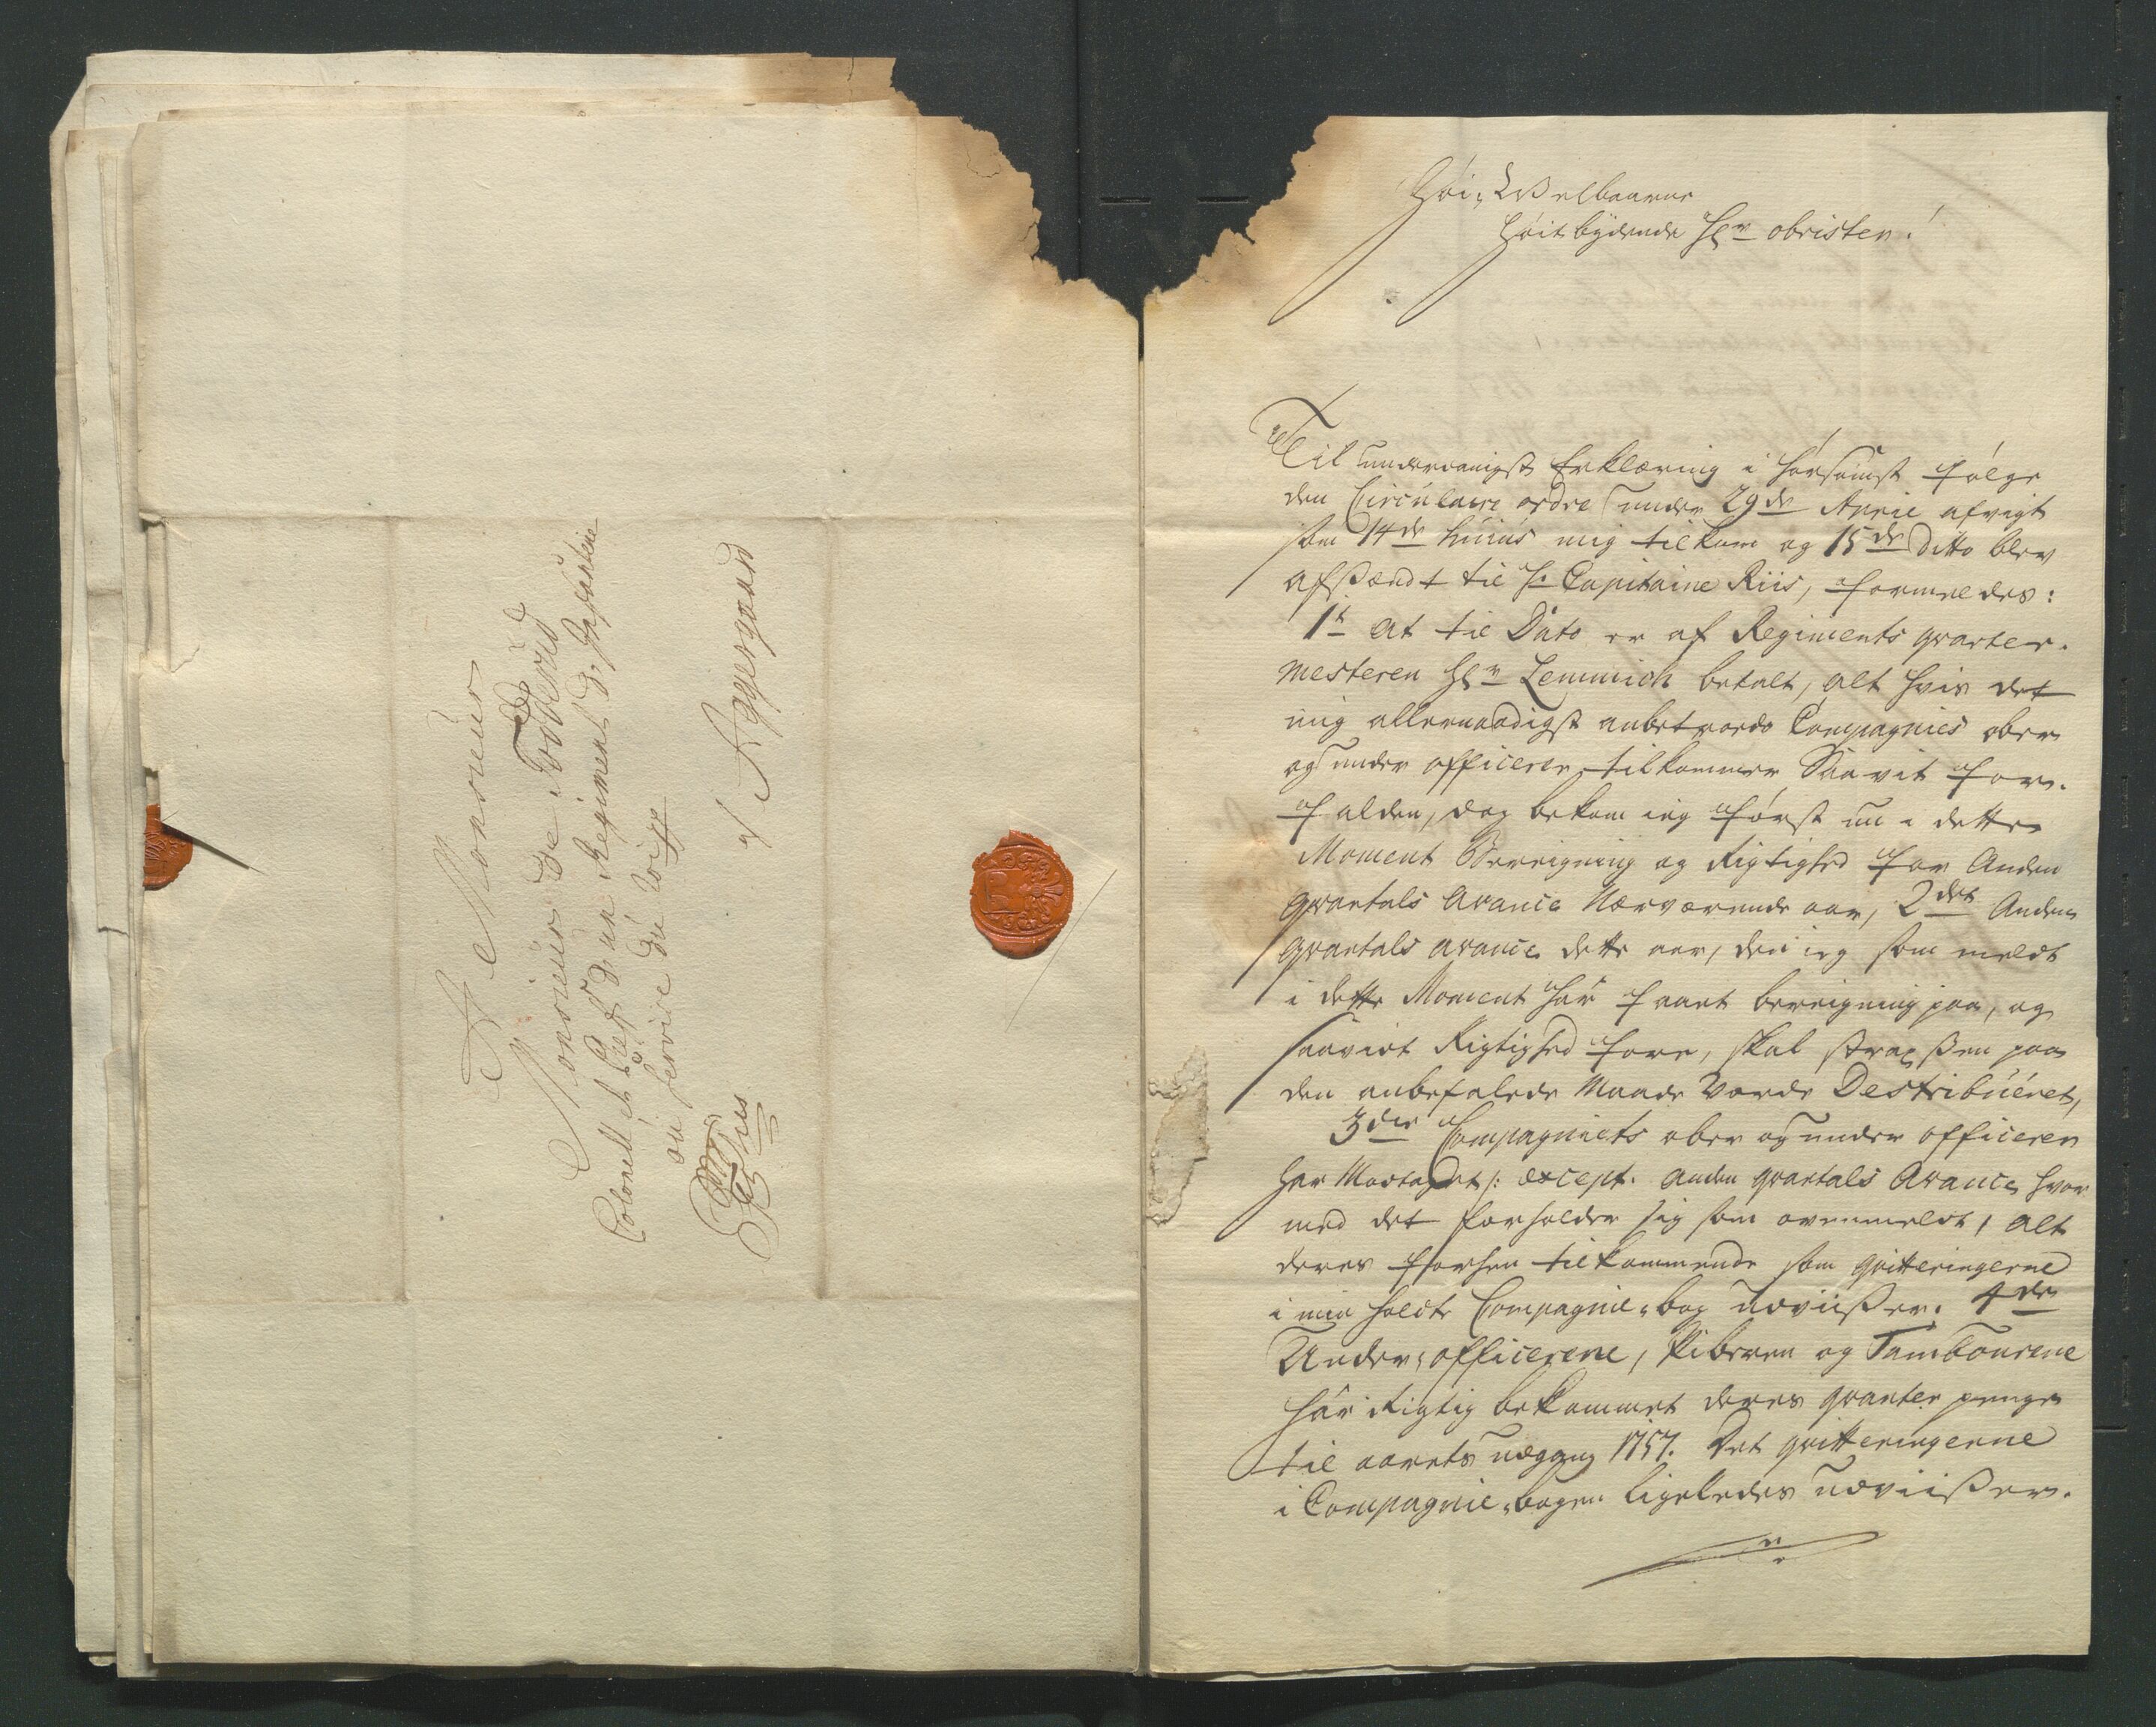 A Monsieur
Monsieur de Todderud
Colonell et Chef d'un Regiment d'Infanterie
au service du Roi pp
a
Aggersgaard
Høi, Welbaarne
Høitbydende Hr obristen!
Til underdanigst Erklæring i hørsamst følge
den Circulaire ordre under 29de April afvigt
som 14de huius mig tilkom og 15de Ditto blev
afsændt til H. Capitaine Riis, formeldes:
1t At til Dato er af Regiments qvarter-
mesteren Hr Lemmich betalt, alt hvis det
mig allernaadigst anbetroede Compagnies ober
og under officerer tilkommer Saavit for-
falden, dog bekom ieg først nu i dette
Moment Bereigning og Rigtighed for Anden
qvartals Avance Nærværende aar, 2det Anden
qvartals avance dette aar, den ieg som meldt
i dette Moment har faaet bereigning paa, og
saavit Rigtighed fore, skal straxsen paa
den anbefalede Maade vorde Destribuéret,
3die Compagniets ober og under officerer
har Modtaget /: except. anden qvartals Avance hvor
med det forholder sig som ovenmeldt, alt
deres forhen tilkommende som qvitteringerne
i min holdte Compagnie-bog udviisser. 4de
Under-officerene, Piberen og Tambourene
har Rigtig bekommet deres qvarteer penge
til aarets udgang 1757. Det qvitteringerne
i Compagnie-bogen ligeledes udviisser.